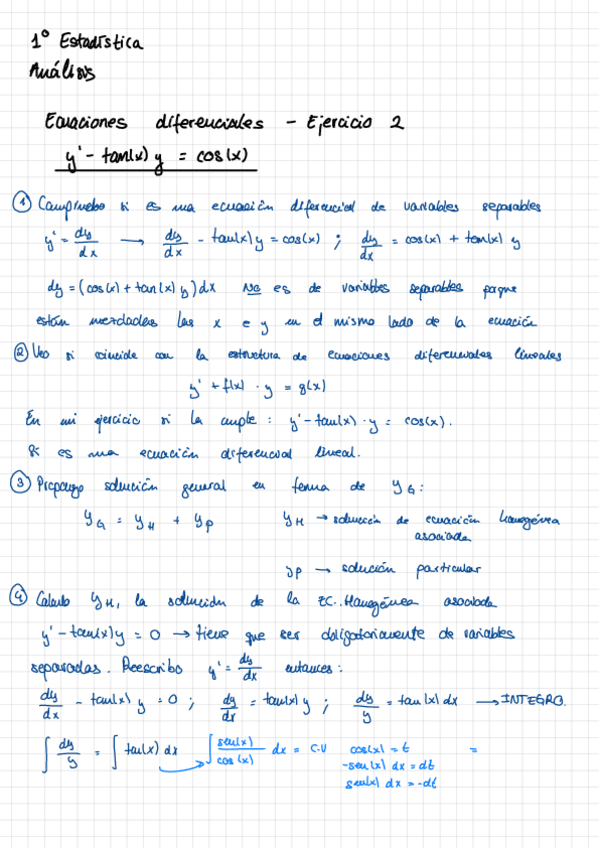 1º Estadística
Análisis
Ecuaciones diferenciales - Ejercicio 2
y' - tan(x) y = cos(x)
① Compruebo si es una ecuación diferencial de variables separables
y' = dy/dx → dy/dx - tan(x) y = cos(x) ; dy/dx = cos(x) + tan(x) y
dy = (cos(x) + tan(x) y) dx No es de variables separables porque
están mezcladas las x e y en el mismo lado de la ecuación
② Veo si coincide con la estructura de ecuaciones diferenciales lineales
y' + f(x) · y = g(x)
En mi ejercicio si la cumple : y' - tan(x) · y = cos(x).
Si es una ecuación diferencial lineal.
③ Propongo solución general en forma de yG :
yG = yH + yP yH → solución de ecuación homogénea
asociada
yP → solución particular
④ Calculo yH, la solución de la EC. Homogénea asociada
y' - tan(x) y = 0 → tiene que ser obligatoriamente de variables
separadas. Reescribo y' = dy/dx entonces :
dy/dx - tan(x) y = 0 ; dy/dx = tan(x) y ; dy/y = tan(x) dx → INTEGRO.
∫ dy/y = ∫ tan(x) dx ∫ sen(x)/cos(x) dx = C.V cos(x) = t =
-sen(x) dx = dt
sen(x) dx = -dt